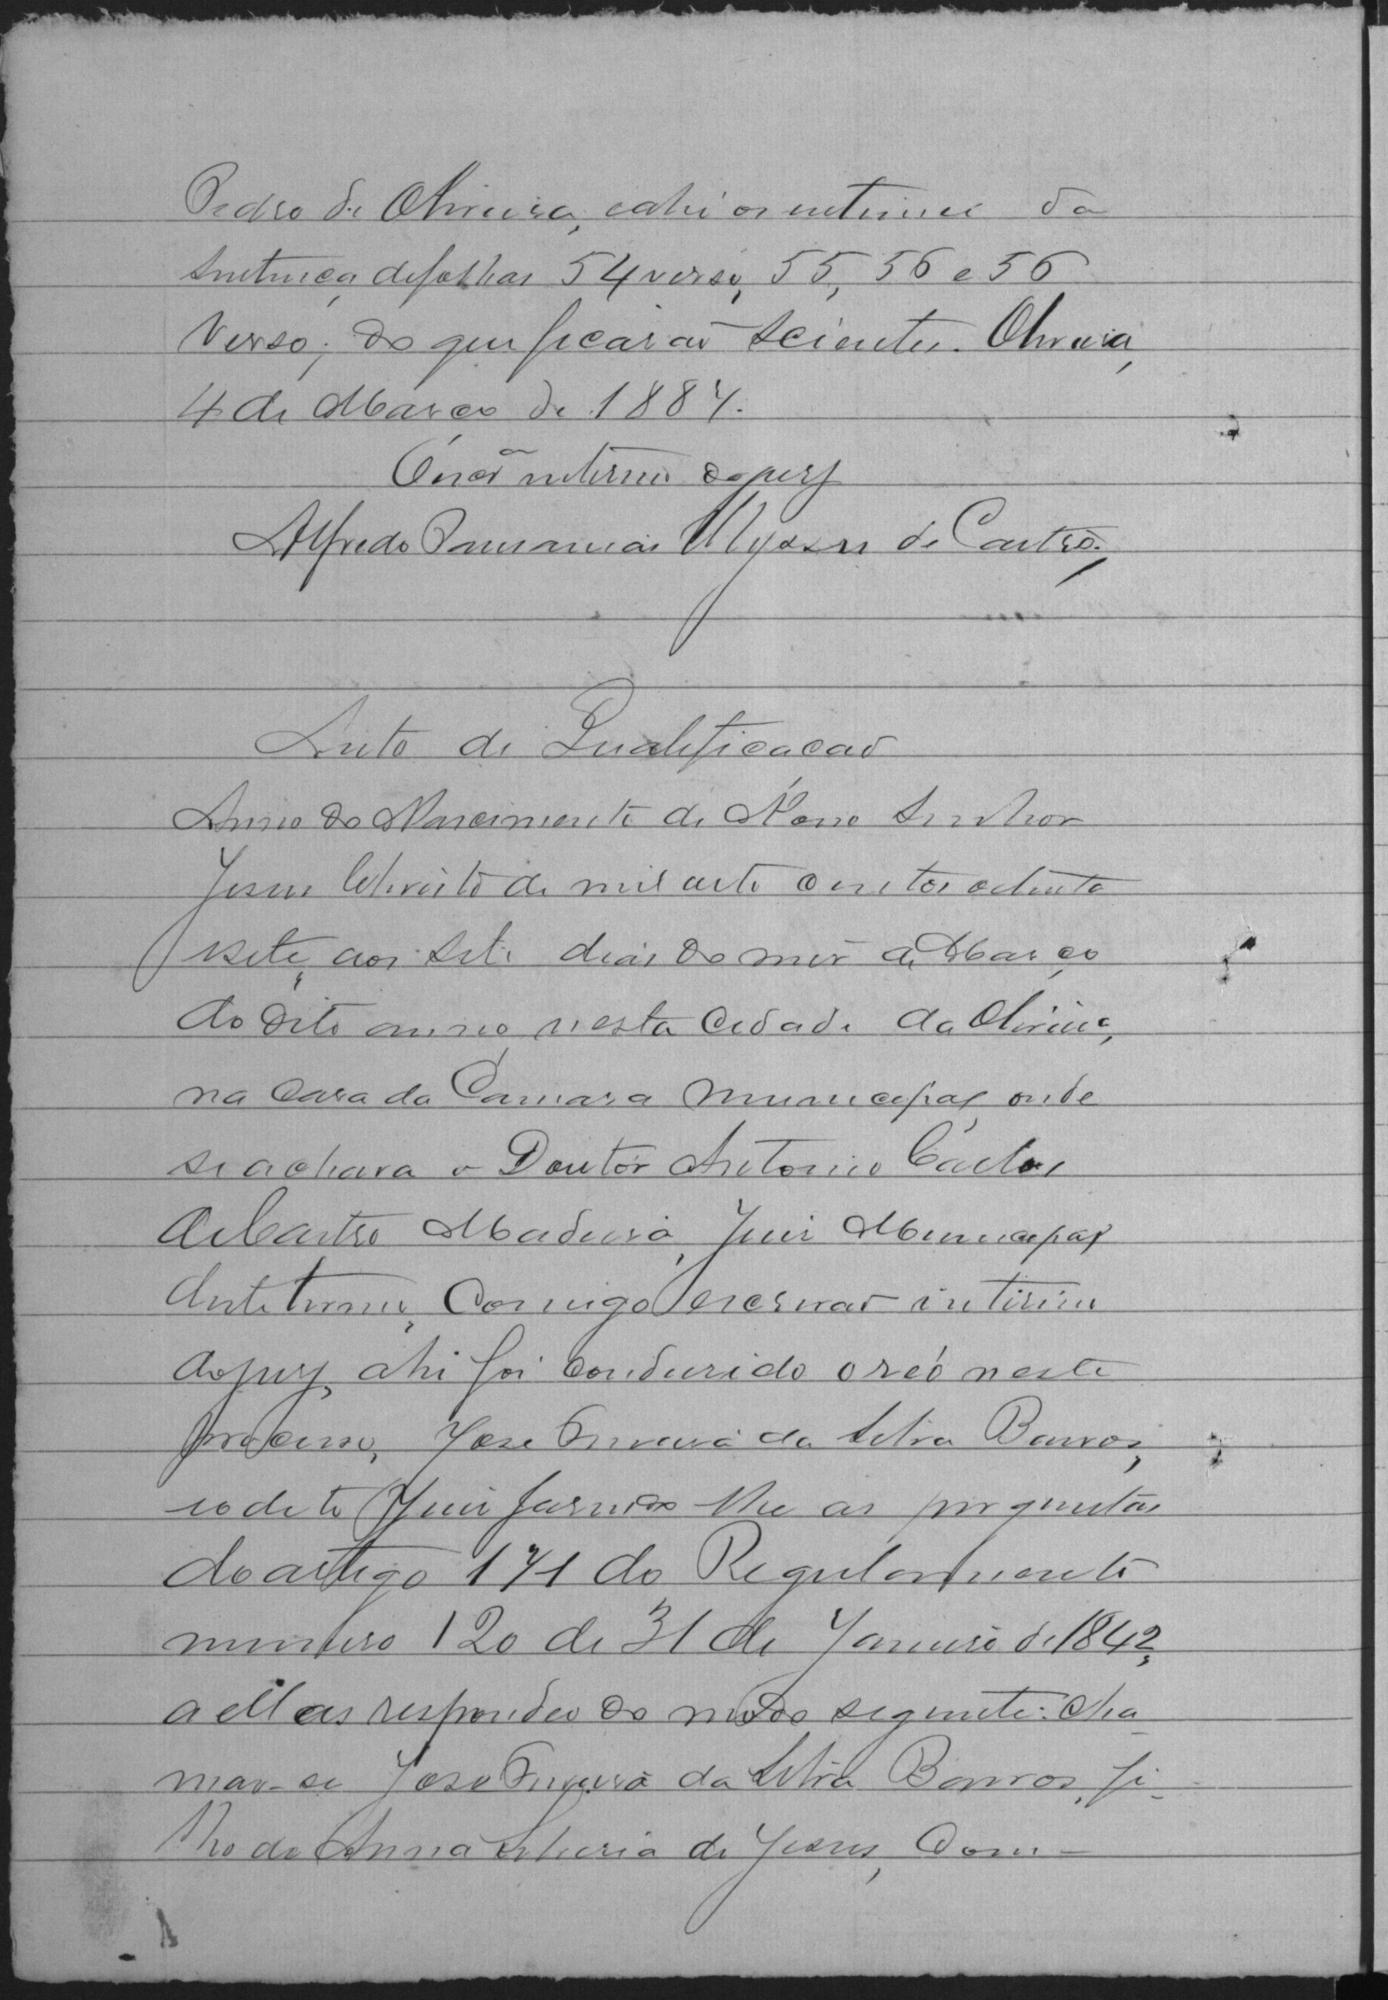 Pedro de Oliveira, e ahi os intimei da
sentença de folhas 54 verso, 55, 56 e 56
verso; do que ficarão scientes. Oliveira,
4 de Março de 1887.
O escrᵃᵐ interino do jury
Alfredo Pausanias Ulysses de Castro.
Auto de Qualificação
Anno do Nascimento de Nosso Senhor
Jesus Christo de mil oito centos oitenta
e sete, aos sete dias do mez de Março
do dito anno, nesta Cidade da Oliveira,
na casa da Camara Municipal, onde
se achava o Doutor Antonio Carlos
de Castro Madeira, Juiz Municipal
deste termo, Comigo escrivão interino
do jury, ahi foi conduzido o reó neste
processo, José da Silva Barros,
e o dito Juiz fazendo lhe as perguntas
do artigo 171 do Regulamento
numero 120 de 31 de Janeiro de 1842,
a ellas respondeo do modo seguinte: cha
mar-se José da Silva Barros, fi-
lho de Anna de Jesus, Com-